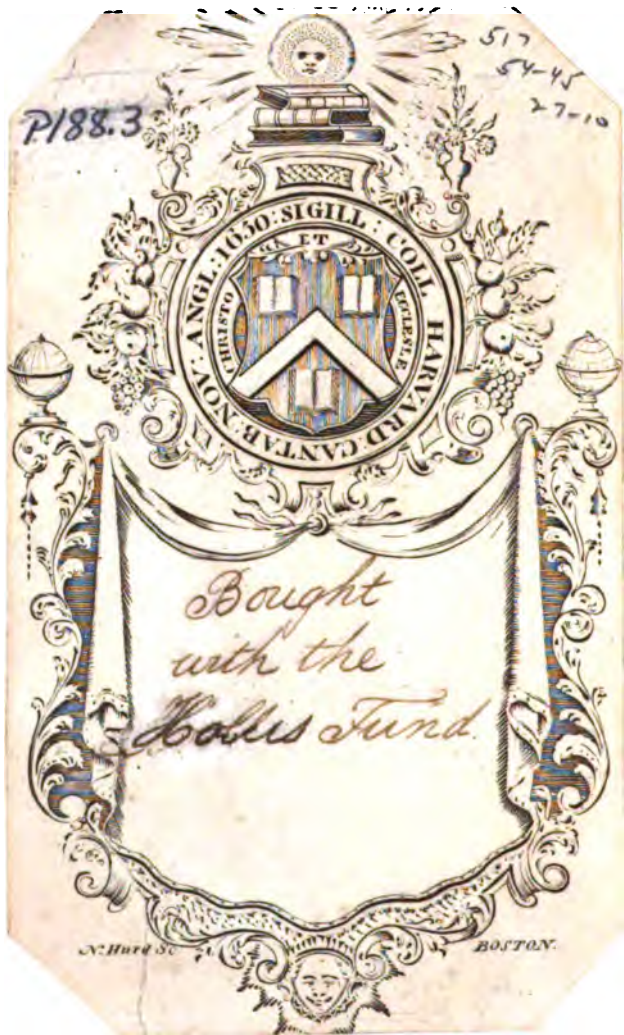 P188.3
517
54-45
27-10
SIGILL : COLL HARVARD: CANTAB: NOV: ANGL: 1650:
ET
CHRISTO
ECCLESIÆ
Bought
with the
Hollis Fund.
N. Hurd Sc
BOSTON.